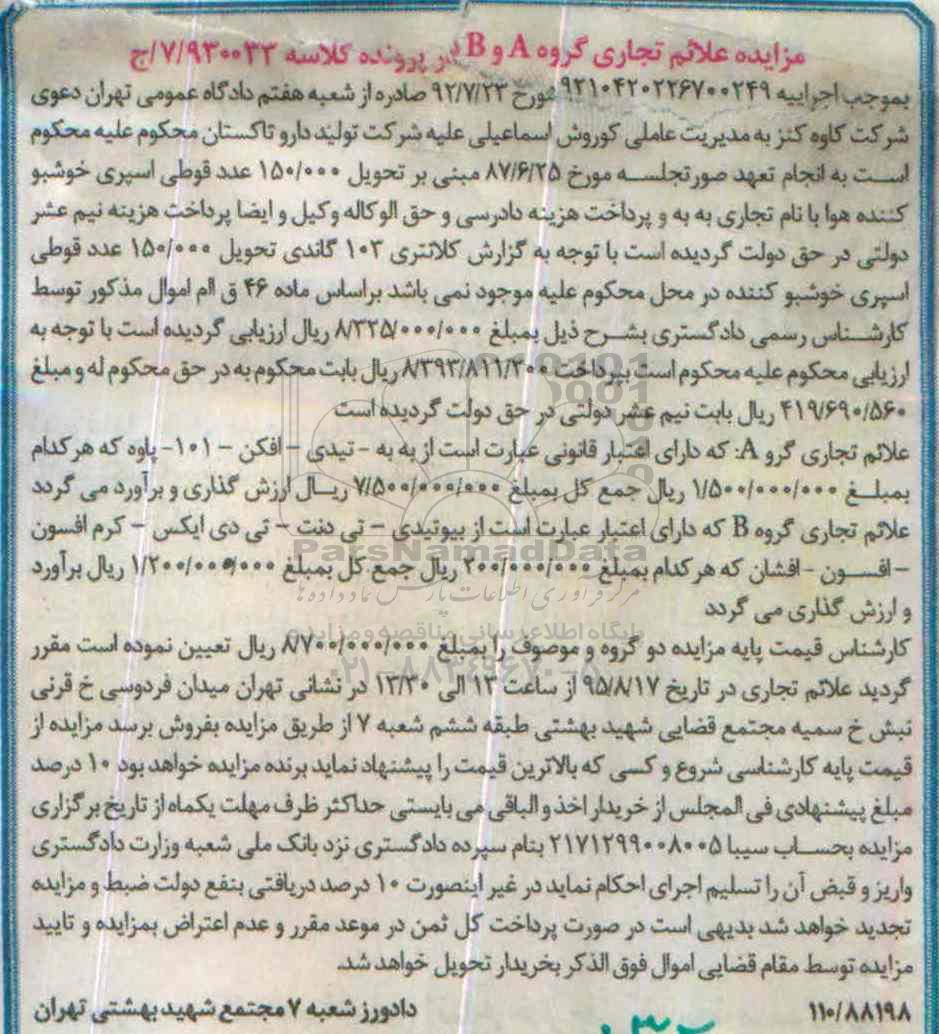 مزایده علائم تجاری گروه A و B در پرونده کلاسه ۷/۹۳۰۰۳۳/ج
بموجب اجراییه ۹۲۱۰۴۲۰۲۲۶۷۰۰۲۴۹ مورخ ۹۲/۷/۲۳ صادره از شعبه هفتم دادگاه عمومی تهران دعوی
شرکت کاوه کنز به مدیریت عاملی کوروش اسماعیلی علیه شرکت تولید دارو تاکستان محکوم علیه محکوم
است به انجام تعهد صورتجلسه مورخ ۸۷/۶/۲۵ مبنی بر تحویل ۱۵۰/۰۰۰ عدد قوطی اسپری خوشبو
کننده هوا با نام تجاری به به و پرداخت هزینه دادرسی و حق الوکاله وکیل و ایضا پرداخت هزینه نیم عشر
دولتی در حق دولت گردیده است با توجه به گزارش کلانتری ۱۰۳ گاندی تحویل ۱۵۰/۰۰۰ عدد قوطی
اسپری خوشبو کننده در محل محکوم علیه موجود نمی باشد براساس ماده ۴۶ ق اام اموال مذکور توسط
کارشناس رسمی دادگستری بشرح ذیل بمبلغ ۸/۳۲۵/۰۰۰/۰۰۰ ریال ارزیابی گردیده است با توجه به
ارزیابی محکوم علیه محکوم است بپرداخت ۸/۳۹۳/۸۱۱/۳۰۰ ریال بابت محکوم به در حق محکوم له و مبلغ
۴۱۹/۶۹۰/۵۶۰ ریال بابت نیم عشر دولتی در حق دولت گردیده است
علائم تجاری گرو A: که دارای اعتبار قانونی عبارت است از به به - تیدی – افکن – ۱۰۱- پاوه که هرکدام
بمبلغ ۱/۵۰۰/۰۰۰/۰۰۰ ریال جمع کل بمبلغ ۷/۵۰۰/۰۰۰/۰۰۰ ریال ارزش گذاری و برآورد می گردد
علائم تجاری گروه B که دارای اعتبار عبارت است از بیوتیدی – تی دنت – تی دی ایکس – کرم افسون
– افسون - افشان که هرکدام بمبلغ ۲۰۰/۰۰۰/۰۰۰ ریال جمع کل بمبلغ ۱/۲۰۰/۰۰۰/۰۰۰ ریال برآورد
و ارزش گذاری می گردد
کارشناس قیمت پایه مزایده دو گروه و موصوف را بمبلغ ۸/۷۰۰/۰۰۰/۰۰۰ ریال تعیین نموده است مقرر
گردید علائم تجاری در تاریخ ۹۵/۸/۱۷ از ساعت ۱۳ الی ۱۳/۳۰ در نشانی تهران میدان فردوسی خ قرنی
نبش خ سمیه مجتمع قضایی شهید بهشتی طبقه ششم شعبه ۷ از طریق مزایده بفروش برسد مزایده از
قیمت پایه کارشناسی شروع و کسی که بالاترین قیمت را پیشنهاد نماید برنده مزایده خواهد بود ۱۰ درصد
مبلغ پیشنهادی فی المجلس از خریدار اخذ و الباقی می بایستی حداکثر ظرف مهلت یکماه از تاریخ برگزاری
مزایده بحساب سیبا ۲۱۷۱۲۹۹۰۰۸۰۰۵ بنام سپرده دادگستری نزد بانک ملی شعبه وزارت دادگستری
واریز و قبض آن را تسلیم اجرای احکام نماید در غیر اینصورت ۱۰ درصد دریافتی بنفع دولت ضبط و مزایده
تجدید خواهد شد بدیهی است در صورت پرداخت کل ثمن در موعد مقرر و عدم اعتراض بمزایده و تایید
مزایده توسط مقام قضایی اموال فوق الذکر بخریدار تحویل خواهد شد.
۱۱۰/۸۸۱۹۸ دادورز شعبه ۷ مجتمع شهید بهشتی تهران
ParsNamadData
پایگاه اطلاع رسانی مناقصه و مزایده